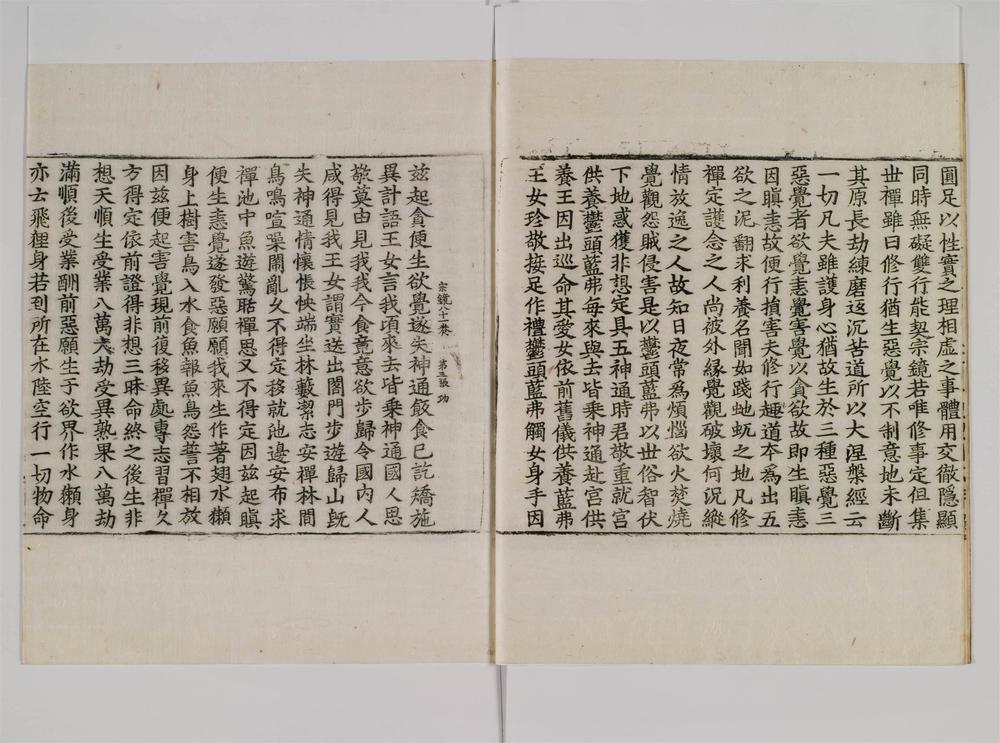 圓足以性實之理相虛之事體用交徹隱顯
同時無礙雙行能契宗鏡若唯修事定但集
世禪雖曰修行猶生惡覺以不制意地未斷
其原長劫練磨返沉苦道所以大涅槃經云
一切凡夫雖護身心猶故生於三種惡覺三
惡覺者欲覺恚覺害覺以貪欲故即生瞋恚
因瞋恚故便行損害夫修行趣道本為出五
欲之泥翻求利養名聞如踐虵蚖之地凡修
禪定護念之人尚被外緣覺觀破壞何況縱
情放逸之人故知日夜常為煩惱欲火焚燒
覺觀怨賊侵害是以鬱頭藍弗以世俗智伏
下地惑獲非想定具五神通時君敬重就宮
供養鬱頭藍弗每來與去皆乘神通赴宮供
養王因出巡命其愛女依前舊儀供養藍弗
王女珍敬接足作禮鬱頭藍弗觸女身手因
宗鏡八十一卷 第五張 功
茲起貪便生欲覺遂失神通飯食已訖矯施
異計語王女言我頃來去皆乘神通國人思
敬莫由見我我今食竟意欲步歸令國內人
咸得見我王女謂實送出閣門步遊歸山旣
失神通情懷悵怏端坐林藪潔志安禪林間
鳥鳴喧噪鬧亂久不得定移就池邊安布求
禪池中魚遊驚聒禪思又不得定因茲起瞋
便生恚覺遂發惡願願我來生作著翅水獺
身上樹害鳥入水食魚報魚鳥怨誓不相放
因茲便起害覺現前復移異處專志習禪久
方得定依前證得非想三昧命終之後生非
想天順生受業八萬大劫受異熟果八萬劫
滿順後受業酬前惡願生于欲界作水獺身
亦云飛狸身若到所在水陸空行一切物命